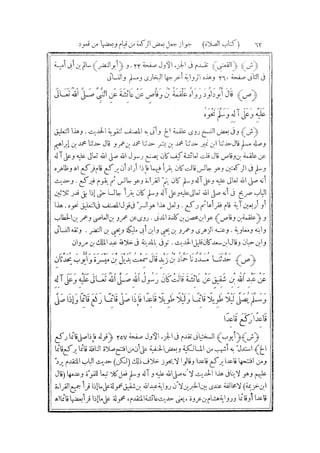 ٦٢ (كتاب الصلاة) جواز جعل بعض الركعة من قيام وبعضها من قعود
(ش) (القعنبي) تقدم فى الجزء الأول صفحة ٢٢. و (أبو النضر) سالم بن أبى أمية
فى الثانى صفحة ٢٦٠ وهذه الرواية أخرجها البخارى ومسلم والنسائى
(ص) قَالَ أَبُو دَاوُدَ رَوَاهُ عَلْقَمَةُ بْنُ وَقَّاصٍ عَنْ عَائِشَةَ عَنِ النَّبِيِّ صَلَّى اللهُ تَعَالَى
عَلَيْهِ وَعَلَى آلِهِ وَسَلَّمَ نَحْوَهُ
(ش) وفى بعض النسخ روى علقمة الخ وأتى به المصنف لتقوية الحديث. وهذا التعليق
وصله مسلم قال حدثنا ابن نمير حدثنا محمد بن بشر حدثنا محمد بن عمرو قال حدثنا محمد بن إبراهيم
عن علقمة بن وقاص قال قلت لعائشة كيف كان يصنع رسول الله صلى الله تعالى عليه وعلى آله
وسلم فى الركعتين وهو جالس قالت كان يقرأ فيهما فإذا أراد أن يركع قام فركع اه وظاهره
أنه صلى الله تعالى عليه وعلى آله وسلم كان يتم القراءة وهو جالس ثم يقوم فيركع. وحديث
الباب صريح فى أنه صلى الله تعالى عليه وعلى آله وسلم كان يقرأ جالسا حتى إذا بقى قدر ثلاثين
أو أربعين آية قام فقرأها ثم ركع. ولعل هذا هو السر فى قول المصنف فى التعليق نحوه. هذا
و (علقمة بن وقاص) هو ابن محصن بن كلدة المدنى. روى عن عمرو بن العاص وعمر بن الخطاب
وابنه ومعاوية. وعنه الزهرى وعمرو بن يحيى وابن أبى مليكة ويحيى بن النضر. وثقه النسائى
وابن حبان وقال ابن سعد كان قليل الحديث. توفى بالمدينة فى خلافة عبد الملك بن مروان
(ص) حَدَّثَنَا مُسَدَّدٌ نَا حَمَّادُ بْنُ زَيْدٍ قَالَ سَمِعْتُ بُدَيْلَ بْنَ مَيْسَرَةَ وَأَيُّوبَ يُحَدِّثَانِ
عَنْ عَبْدِ اللهِ بْنِ شَقِيقٍ عَنْ عَائِشَةَ قَالَتْ كَانَ رَسُولُ اللهِ صَلَّى اللهُ تَعَالَى عَلَيْهِ وَعَلَى آلِهِ
وَسَلَّمَ يُصَلِّي لَيْلًا طَوِيلًا قَائِمًا وَلَيْلًا طَوِيلًا قَاعِدًا فَإِذَا صَلَّى قَائِمًا رَكَعَ قَائِمًا وَإِذَا صَلَّى
قَاعِدًا رَكَعَ قَاعِدًا
(ش) (أيوب) السختيانى تقدم فى الجزء الأول صفحة ٢٥٧ (قوله فإذا صلى قائما ركع
الخ) استدل به أشهب من المالكية وبعض الحنفية على أن من افتتح صلاة النافلة قائما يركع قائما
ومن افتتحها قاعدا يركع قاعدا وقالوا لا يجوز خلاف ذلك (لكن) حديث الباب المتقدم يرد
عليهم وهو لا ينافى هذا الحديث لأنه صلى الله عليه وآله وسلم فعل كلا تبعا للقوة وعدمها (قال
ابن خزيمة) لا مخالفة عندى بين الخبرين لأن رواية عبد الله بن شقيق محمولة على ما إذا قرأ جميع القراءة
قاعدا أو قائما ورواية هشام بن عروة، يعنى حديث عائشة المتقدم، محمولة على ما إذا قرأ بعضها قائما اه